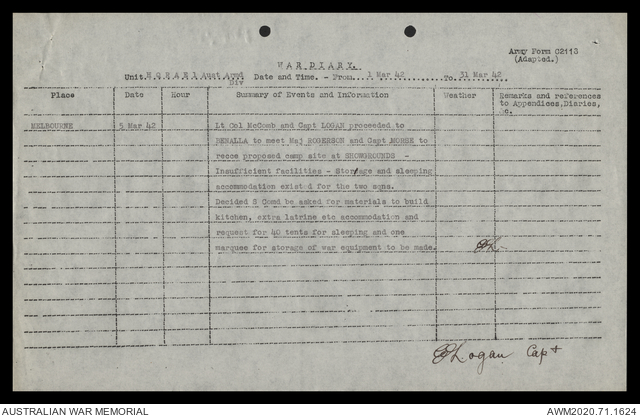 Army Form C2118
(Adapted.)
WAR DIARY.
Unit. H Q R A E 1 Aust Armd Div Date and Time. - From...1 Mar 42............To 31 Mar 42
Place Date Hour Summary of Events and Information Weather Remarks and references to Appendices, Diaries, &c.
MELBOURNE 5 Mar 42 Lt Col McComb and Capt LOGAN proceeded to
BENALLA to meet Maj ROGERSON and Capt MORSE to
recce proposed camp site at SHOWGROUNDS -
Insufficient facilities - Storage and sleeping
accommodation existed for the two sqns.
Decided S Comd be asked for materials to build
kitchen, extra latrine etc accommodation and
request for 40 tents for sleeping and one
marquee for storage of war equipment to be made.
Logan Capt
AUSTRALIAN WAR MEMORIAL
AWM2020.71.1624